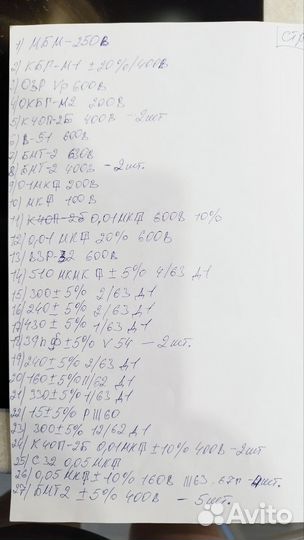 стр
1) МБМ-250В
2) КБГ-М1 ±20%/400В
3) ОЗР Vp 600В
4) ОКБГ-М2 200В
5) К40П-2Б 400В - 2шт
6) В-51 600В
7) БМТ-2 630В
8) БМТ-2 400В - 2шт.
9) 0,1МКФ 200В
10) МКФ 100В
11) К40П-2Б 0,01МКФ 600В 10%
12) 0,01 МКФ 20% 600В
13) 600В
14) 510 МКМКФ ±5% 4/63 Д1
15) 300±5% 2/63 Д1
16) 240±5% 2/63 Д1
17) 430±5% 1/63 Д1
18) 39пф±5% V 54 - 2шт.
19) 240±5% 2/63 Д1
20) 160±5% 11/62 Д1
21) 330±5% 1/63 Д1
22) 15±5% Р Ш60
23) 300±5% 12/62 Д1
24) К40П-2Б 0,01МКФ±10% 400В-2шт
25) С32 0,05МКФ
26) 0,05 МКФ±10% 160В Ш63, 67г - 4шт.
27) БМТ2 ±5% 400В - 5шт.
Avito